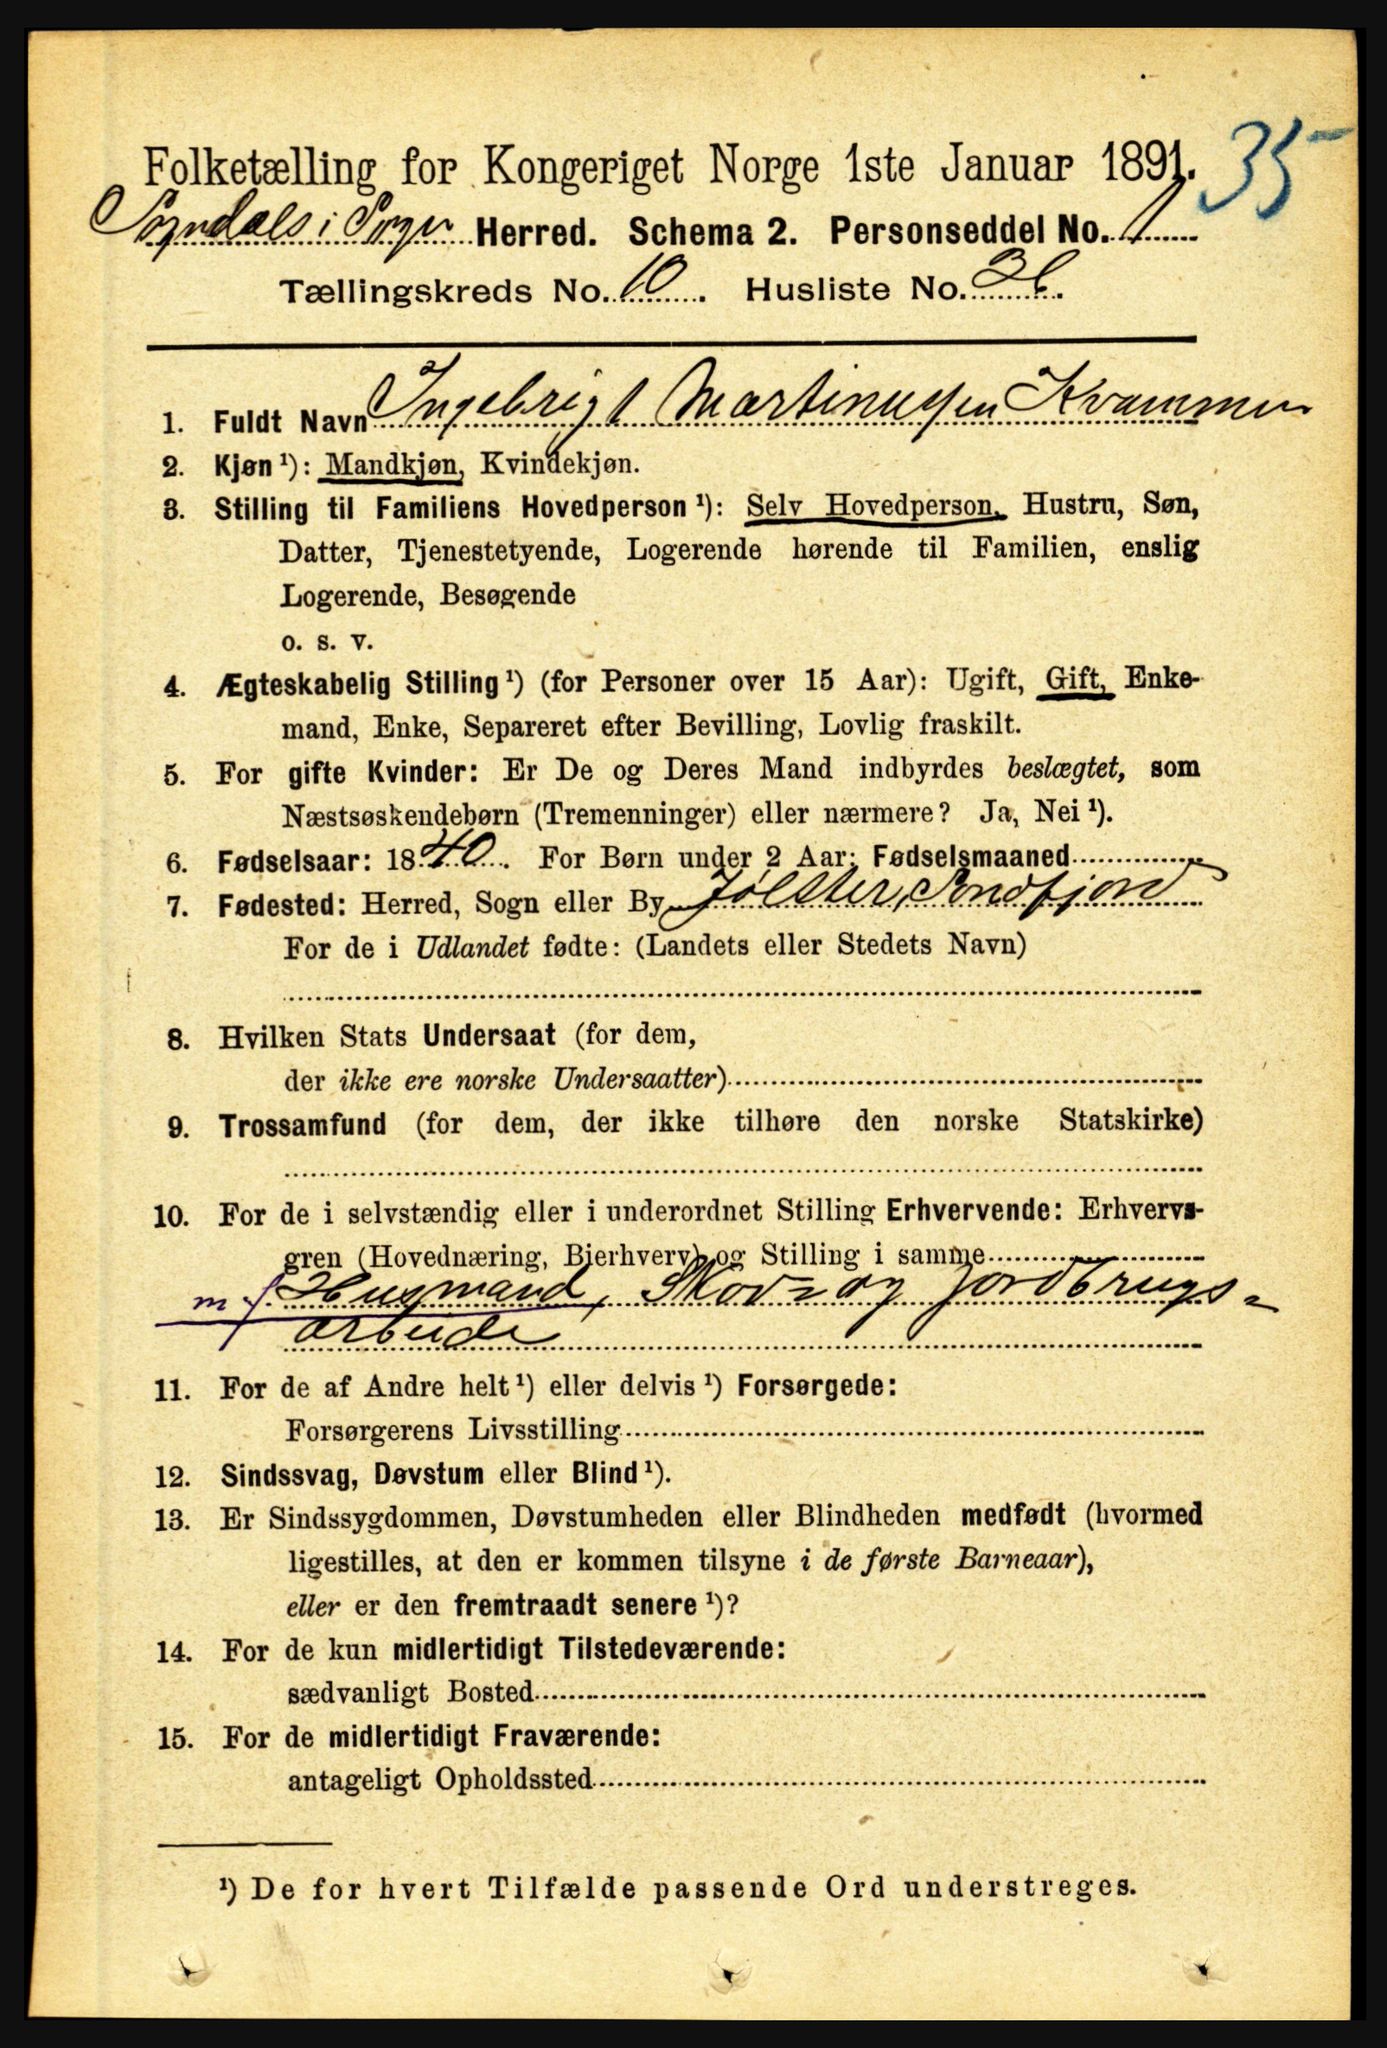 35
Folketælling for Kongeriget Norge 1ste Januar 1891.
Sogndals i Sogn Herred. Schema 2. Personseddel No. 1
Tællingskreds No. 10. Husliste No. 36.
1. Fuldt Navn Ingebrigt Martinussen Kvammen
2. Kjøn ¹): Mandkjøn, Kvindekjøn.
3. Stilling til Familiens Hovedperson ¹): Selv Hovedperson, Hustru, Søn,
Datter, Tjenestetyende, Logerende hørende til Familien, enslig
Logerende, Besøgende
o. s. v.
4. Ægteskabelig Stilling ¹) (for Personer over 15 Aar): Ugift, Gift, Enke-
mand, Enke, Separeret efter Bevilling, Lovlig fraskilt.
5. For gifte Kvinder: Er De og Deres Mand indbyrdes beslægtet, som
Næstsøskendebørn (Tremenninger) eller nærmere? Ja, Nei ¹).
6. Fødselsaar: 1840. For Børn under 2 Aar: Fødselsmaaned
7. Fødested: Herred, Sogn eller By Jølster, Søndfjord
For de i Udlandet fødte: (Landets eller Stedets Navn)
8. Hvilken Stats Undersaat (for dem,
der ikke ere norske Undersaatter)
9. Trossamfund (for dem, der ikke tilhøre den norske Statskirke)
10. For de i selvstændig eller i underordnet Stilling Erhvervende: Erhvervs-
gren (Hovednæring, Bierhverv) og Stilling i samme
m. j. Husmand, Skov- og Jordbrugs-
arbeide
11. For de af Andre helt ¹) eller delvis ¹) Forsørgede:
Forsørgerens Livsstilling
12. Sindssvag, Døvstum eller Blind ¹).
13. Er Sindssygdommen, Døvstumheden eller Blindheden medfødt (hvormed
ligestilles, at den er kommen tilsyne i de første Barneaar),
eller er den fremtraadt senere ¹)?
14. For de kun midlertidigt Tilstedeværende:
sædvanligt Bosted
15. For de midlertidigt Fraværende:
antageligt Opholdssted
¹) De for hvert Tilfælde passende Ord understreges.